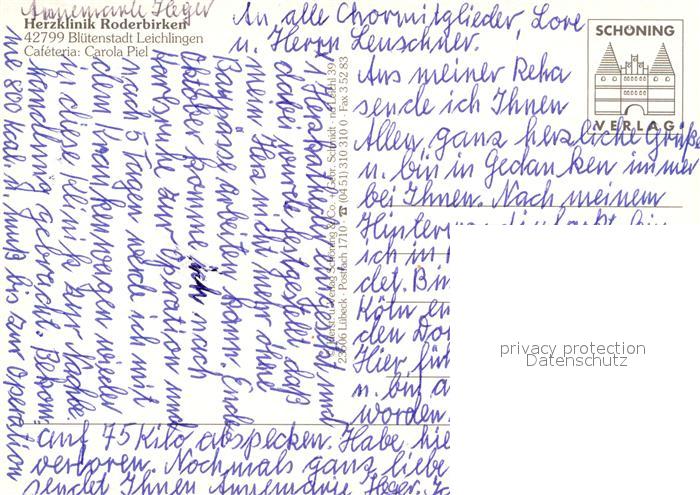 Annemarie Heger
Herzklinik Roderbirken
42799 Blütenstadt Leichlingen
Caféteria: Carola Piel
An alle Chormitglieder, Lore
u. Herrn Leuschner.
Aus meiner Reha
sende ich Ihnen
Allen ganz herzliche Grüße
u. bin in Gedanken immer
bei Ihnen. Nach meinem
ich in
det. Bin
Köln
den Dom
Hier
u.
worden.
1 Herzkatheder eingesetzt und
dabei wurde festgestellt, daß
mein Herz nicht mehr ohne
Baypässe arbeiten kann. Ende
Oktober komme ich nach
Karlsruhe zur Operation und
nach 5 Tagen werde ich mit
dem Krankenwagen wieder
in diese Klinik zur
handlung gebracht. Bekom-
me 800 Kcal. u. muß bis zur Operation
auf 75 Kilo abspecken. Habe hie
verloren. Nochmals ganz liebe
sendet Ihnen Annemarie Heger.
SCHÖNING
VERLAG
Schöning & Co. + Gebr. Schmidt
23506 Lübeck · Postfach 1710 · ☎ (04 51) 310 310 0 · Fax 3 52 83
privacy protection
Datenschutz